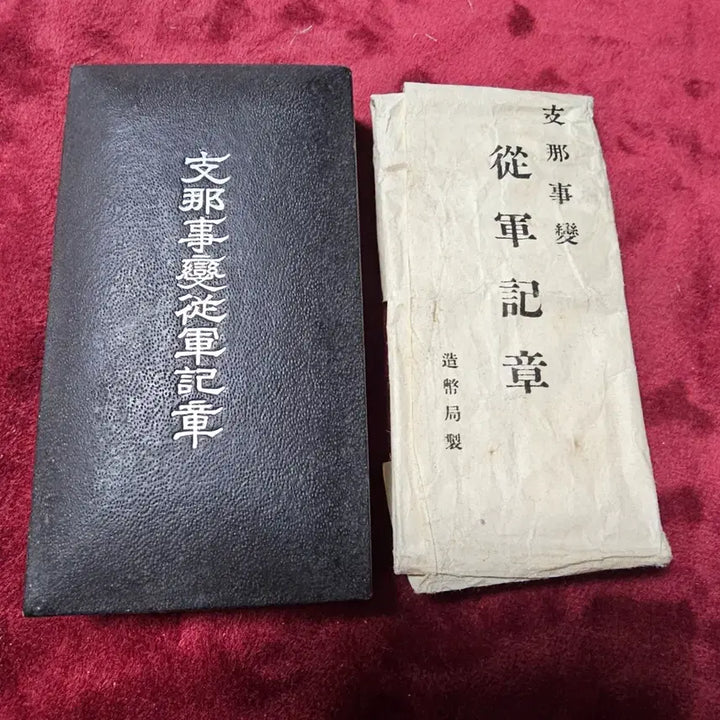 支那事變從軍記章
支那事變
從軍記章
造幣局製